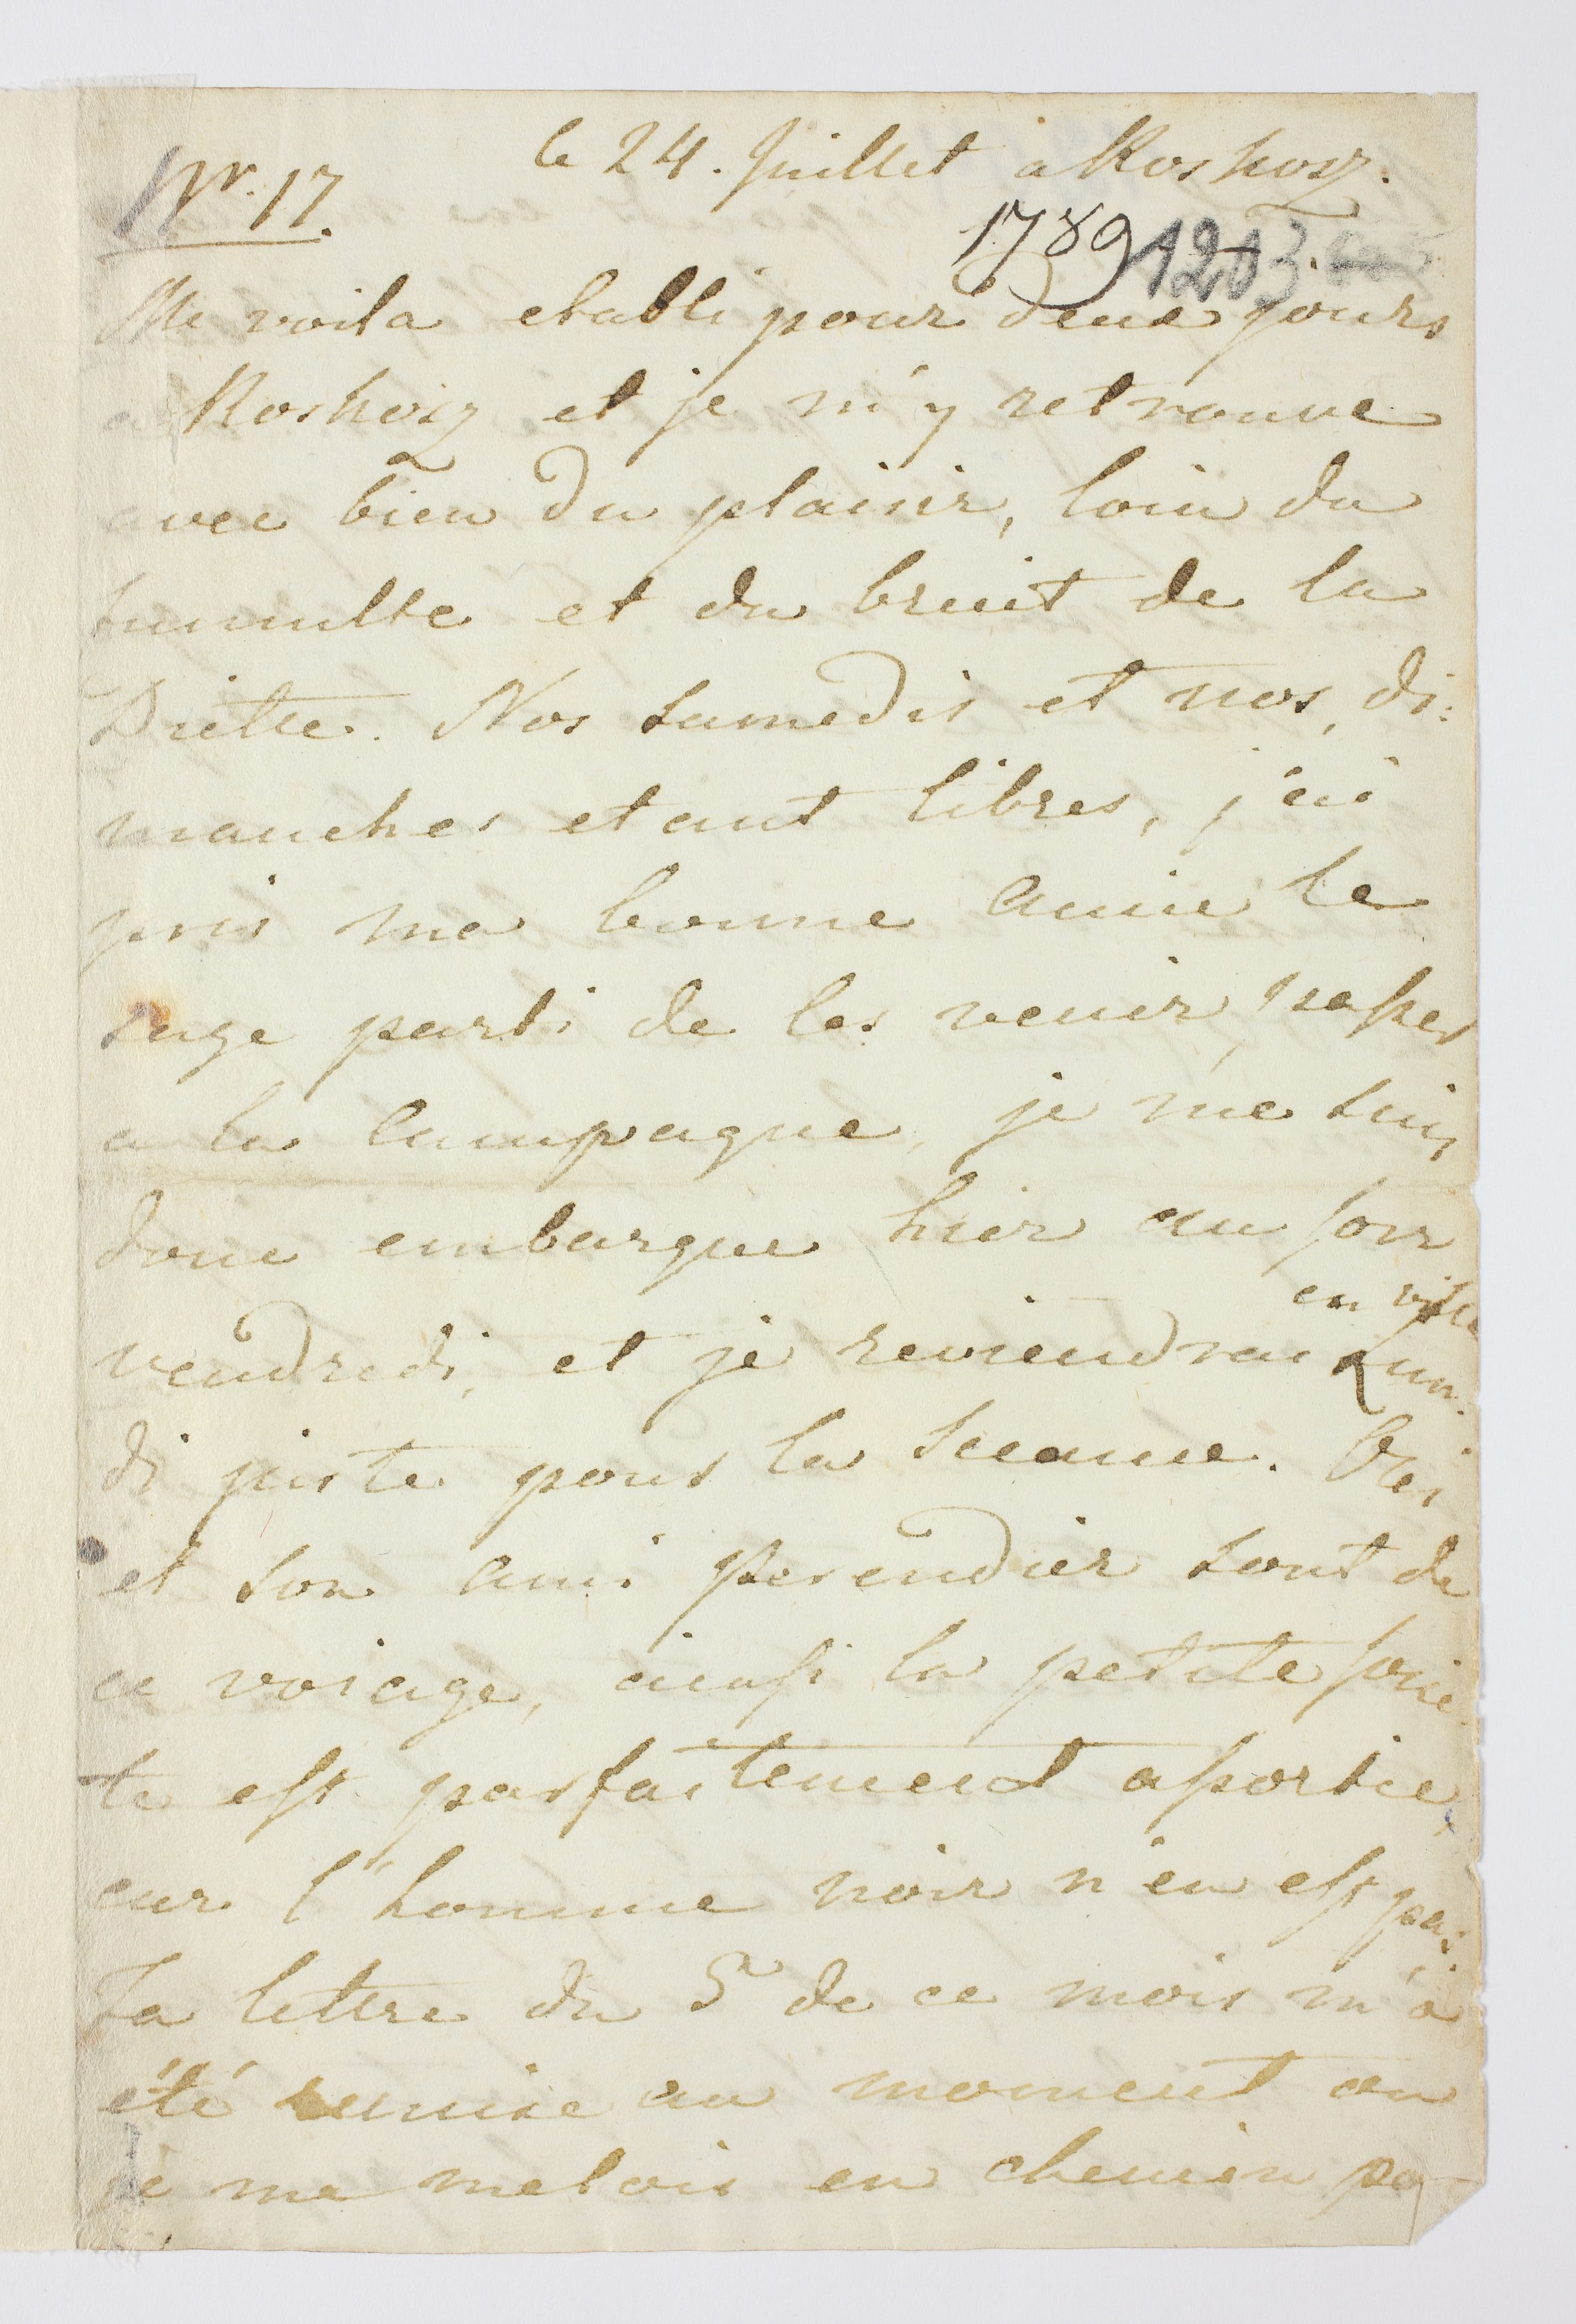 le 24. Juillet a Koshosz.
Nr. 17.
1789
Me voila etabli pour deux jours
a Koshosz et je m'y retrouve
avec bien du plaisir, loin du
tumulte et du bruit de la
Diette. Nos samedis et nos di:
manches etant libres, j'ai
pris ma bonne amie le
sage parti de les venir passer
a la campagne, je me suis
donc embarque hier au soir
en ville
vendredi, et je reviendrai Lun:
di juste pour la seance.
et son ami sont de
ce voiage, ainsi la petite socie
te est parfaitement assortie,
car l'homme noir n'en est pas.
Ta lettre du 5 de ce mois m'a
été remise au moment ou
je me metois en chemin po